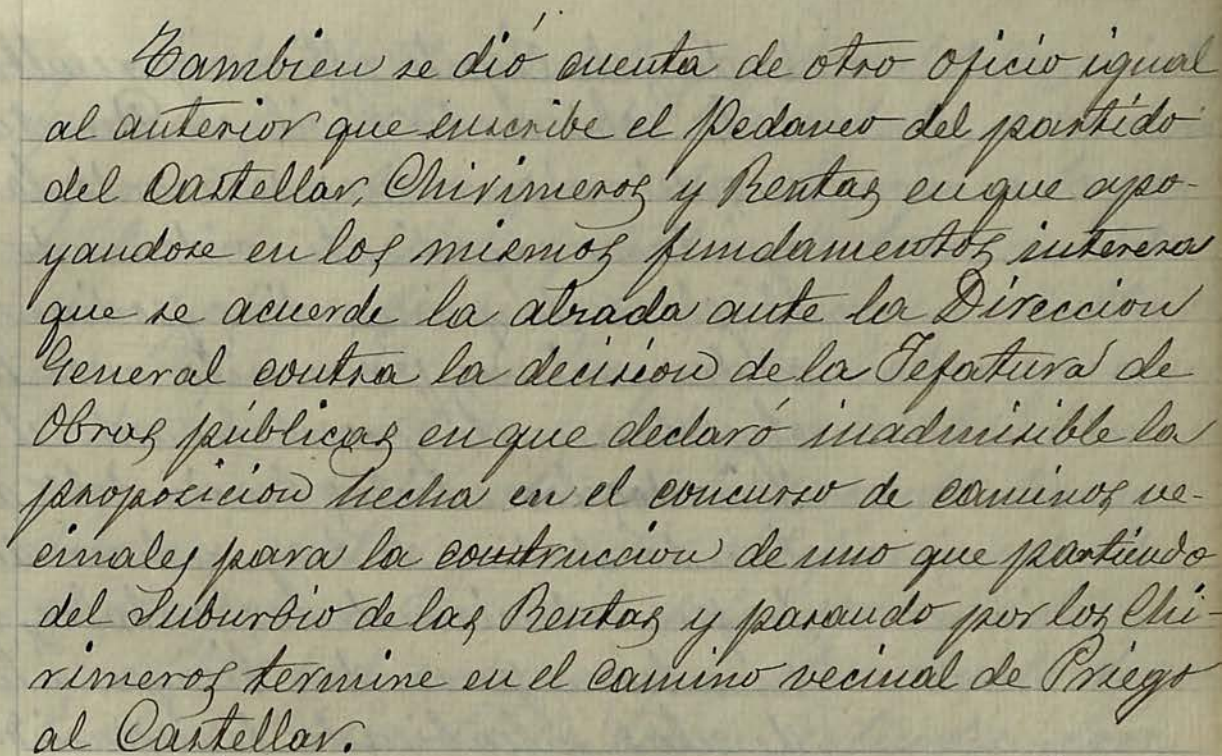 Tambien se dió cuenta de otro oficio igual
al anterior que suscribe el Pedaneo del partido
del Castellar, Chirimeros y Rentas en que apo-
yandose en los mismos fundamentos interesa
que se acuerde la alzada ante la Direccion
General contra la decision de la Jefatura de
Obras públicas en que declaró inadmisible la
proposicion hecha en el concurso de caminos ve-
cinales para la construccion de uno que partiendo
del Suburbio de las Rentas y pasando por los Chi-
rimeros termine en el camino vecinal de Priego
al Castellar.